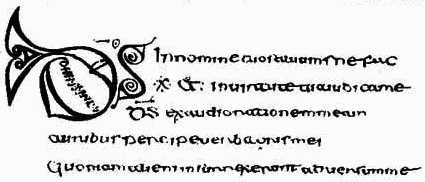 DS In nomine tuo saluum me fac
et in uirtute tua iudica me
DS exaudi orationem meam
auribus percipe uerba oris mei
Quoniam alieni insurrexerunt aduersum me